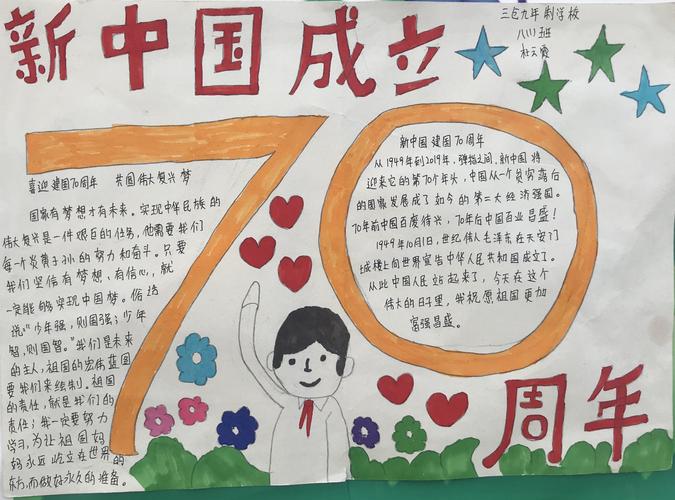 新中国成立
三仓九年制学校
八(1)班
杜云霞
70
喜迎建国70周年 共圆伟大复兴梦
国家有梦想才有未来。实现中华民族的
伟大复兴是一件艰巨的任务,他需要我们
每一个炎黄子孙的努力和奋斗。只要
我们坚信有梦想、有信心,就
一定能够实现中国梦。俗话
说“少年强,则国强;少年
智,则国智。”我们是未来
的主人,祖国的宏伟蓝图
要我们来绘制。祖国
的责任,就是我们的
责任;我一定要努力
学习,为让祖国妈
妈永远屹立在世界的
东方,而做好永久的准备。
新中国建国70周年
从1949年到2019年,弹指之间,新中国将
迎来它的第70个年头,中国从一个贫穷落后
的国家发展成了如今的第二大经济强国。
70年前中国百废待兴,70年后中国百业昌盛!
1949年10月1日,世纪伟人毛泽东在天安门
城楼上向世界宣告中华人民共和国成立了。
从此中国人民站起来了,今天在这个
伟大的日子里,我祝愿祖国更加
富强昌盛。
周年